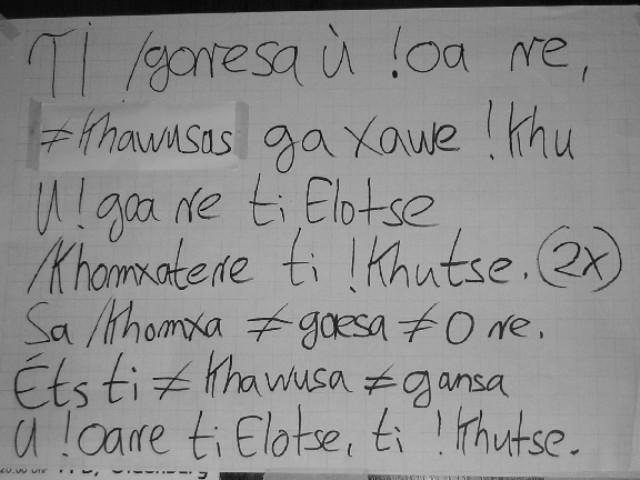 Ti /goresa ù !oa re,
≠Khawusas ga xawe !Khu
U!goa re ti Elotse
/Khomxatere ti !Khutse. (2x)
Sa /Khomxa ≠gaesa ≠O re.
Éts ti ≠Khawusa ≠gansa
U !oare ti Elotse, ti !Khutse.